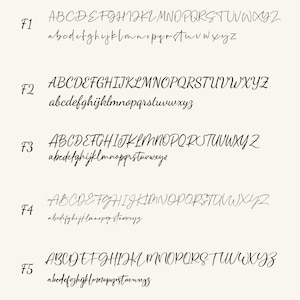 F1
ABCDEFGHIJKLMNOPQRSTUVWXYZ
abcdefghijklmnopqrstuvwxyz
F2
ABCDEFGHIJKLMNOPQRSTUVWXYZ
abcdefghijklmnopqrstuvwxyz
F3
ABCDEFGHIJKLMNOPQRSTUVWXYZ
abcdefghijklmnopqrstuvwxyz
F4
ABCDEFGHIJKLMNOPQRSTUVWXYZ
abcdefghijklmnopqrstuvwxyz
F5
ABCDEFGHIJKLMNOPQRSTUVWXYZ
abcdefghijklmnopqrstuvwxyz